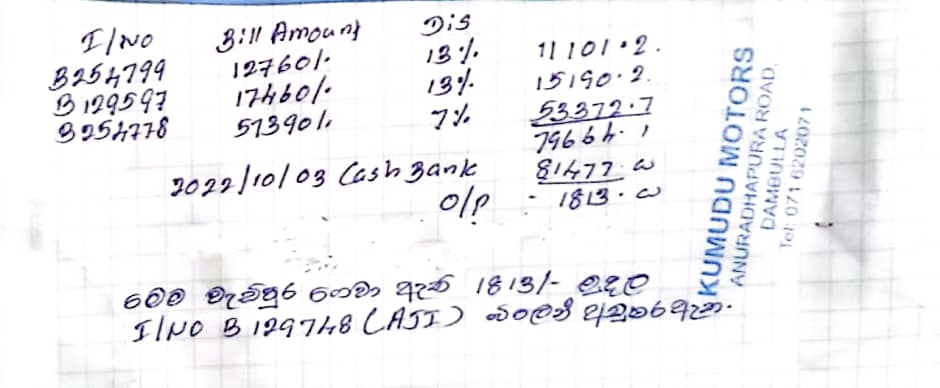 I/NO Bill Amount Dis
B254799 12760/. 13%. 11101.2.
B129597 17460/. 13%. 15190.2.
B254778 57390/. 7%. 53372.7
79664.1
2022/10/03 Cash Bank 81477.ω
O/P - 1813.ω
මෙම වැඩිපුර ගෙවා ඇති 1813/- මුදල
I/NO B 129748 (AJI) බිලෙන් අඩුකර ඇත.
KUMUDU MOTORS
ANURADHAPURA ROAD,
DAMBULLA
Tel: 071 6202071